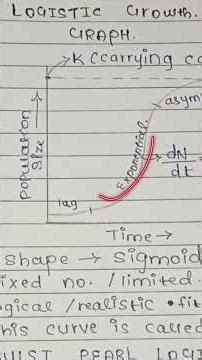 LOGISTIC Growth.
GRAPH.
K (carrying ca
asym
Exponential.
Population Size →
dN
dt
lag
Time →
shape → sigmoid
ixed no. / limited.
gical / realistic • fit
his curve is called